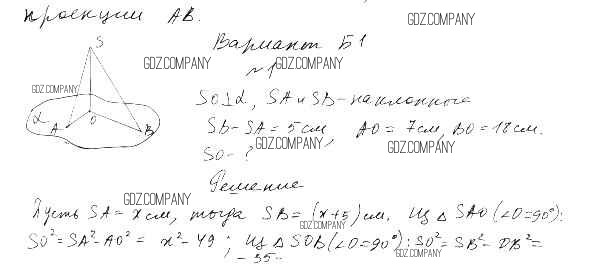 проекции AB.
GDZ.COMPANY
Вариант Б1
GDZ.COMPANY
№1
GDZ.COMPANY
S
GDZ.COMPANY
α
A
O
B
SO⊥α, SA и SB - наклонные
SB-SA = 5 см, AO = 7 см, BO = 18 см.
GDZ.COMPANY
GDZ.COMPANY
SO - ?
Решение
GDZ.COMPANY
Пусть SA = x см, тогда SB = (x+5) см. Из △ SAO (∠O=90°):
GDZ.COMPANY
SO² = SA² - AO² = x² - 49; Из △ SOB (∠O=90°): SO² = SB² - OB² =
GDZ.COMPANY
- 55 -